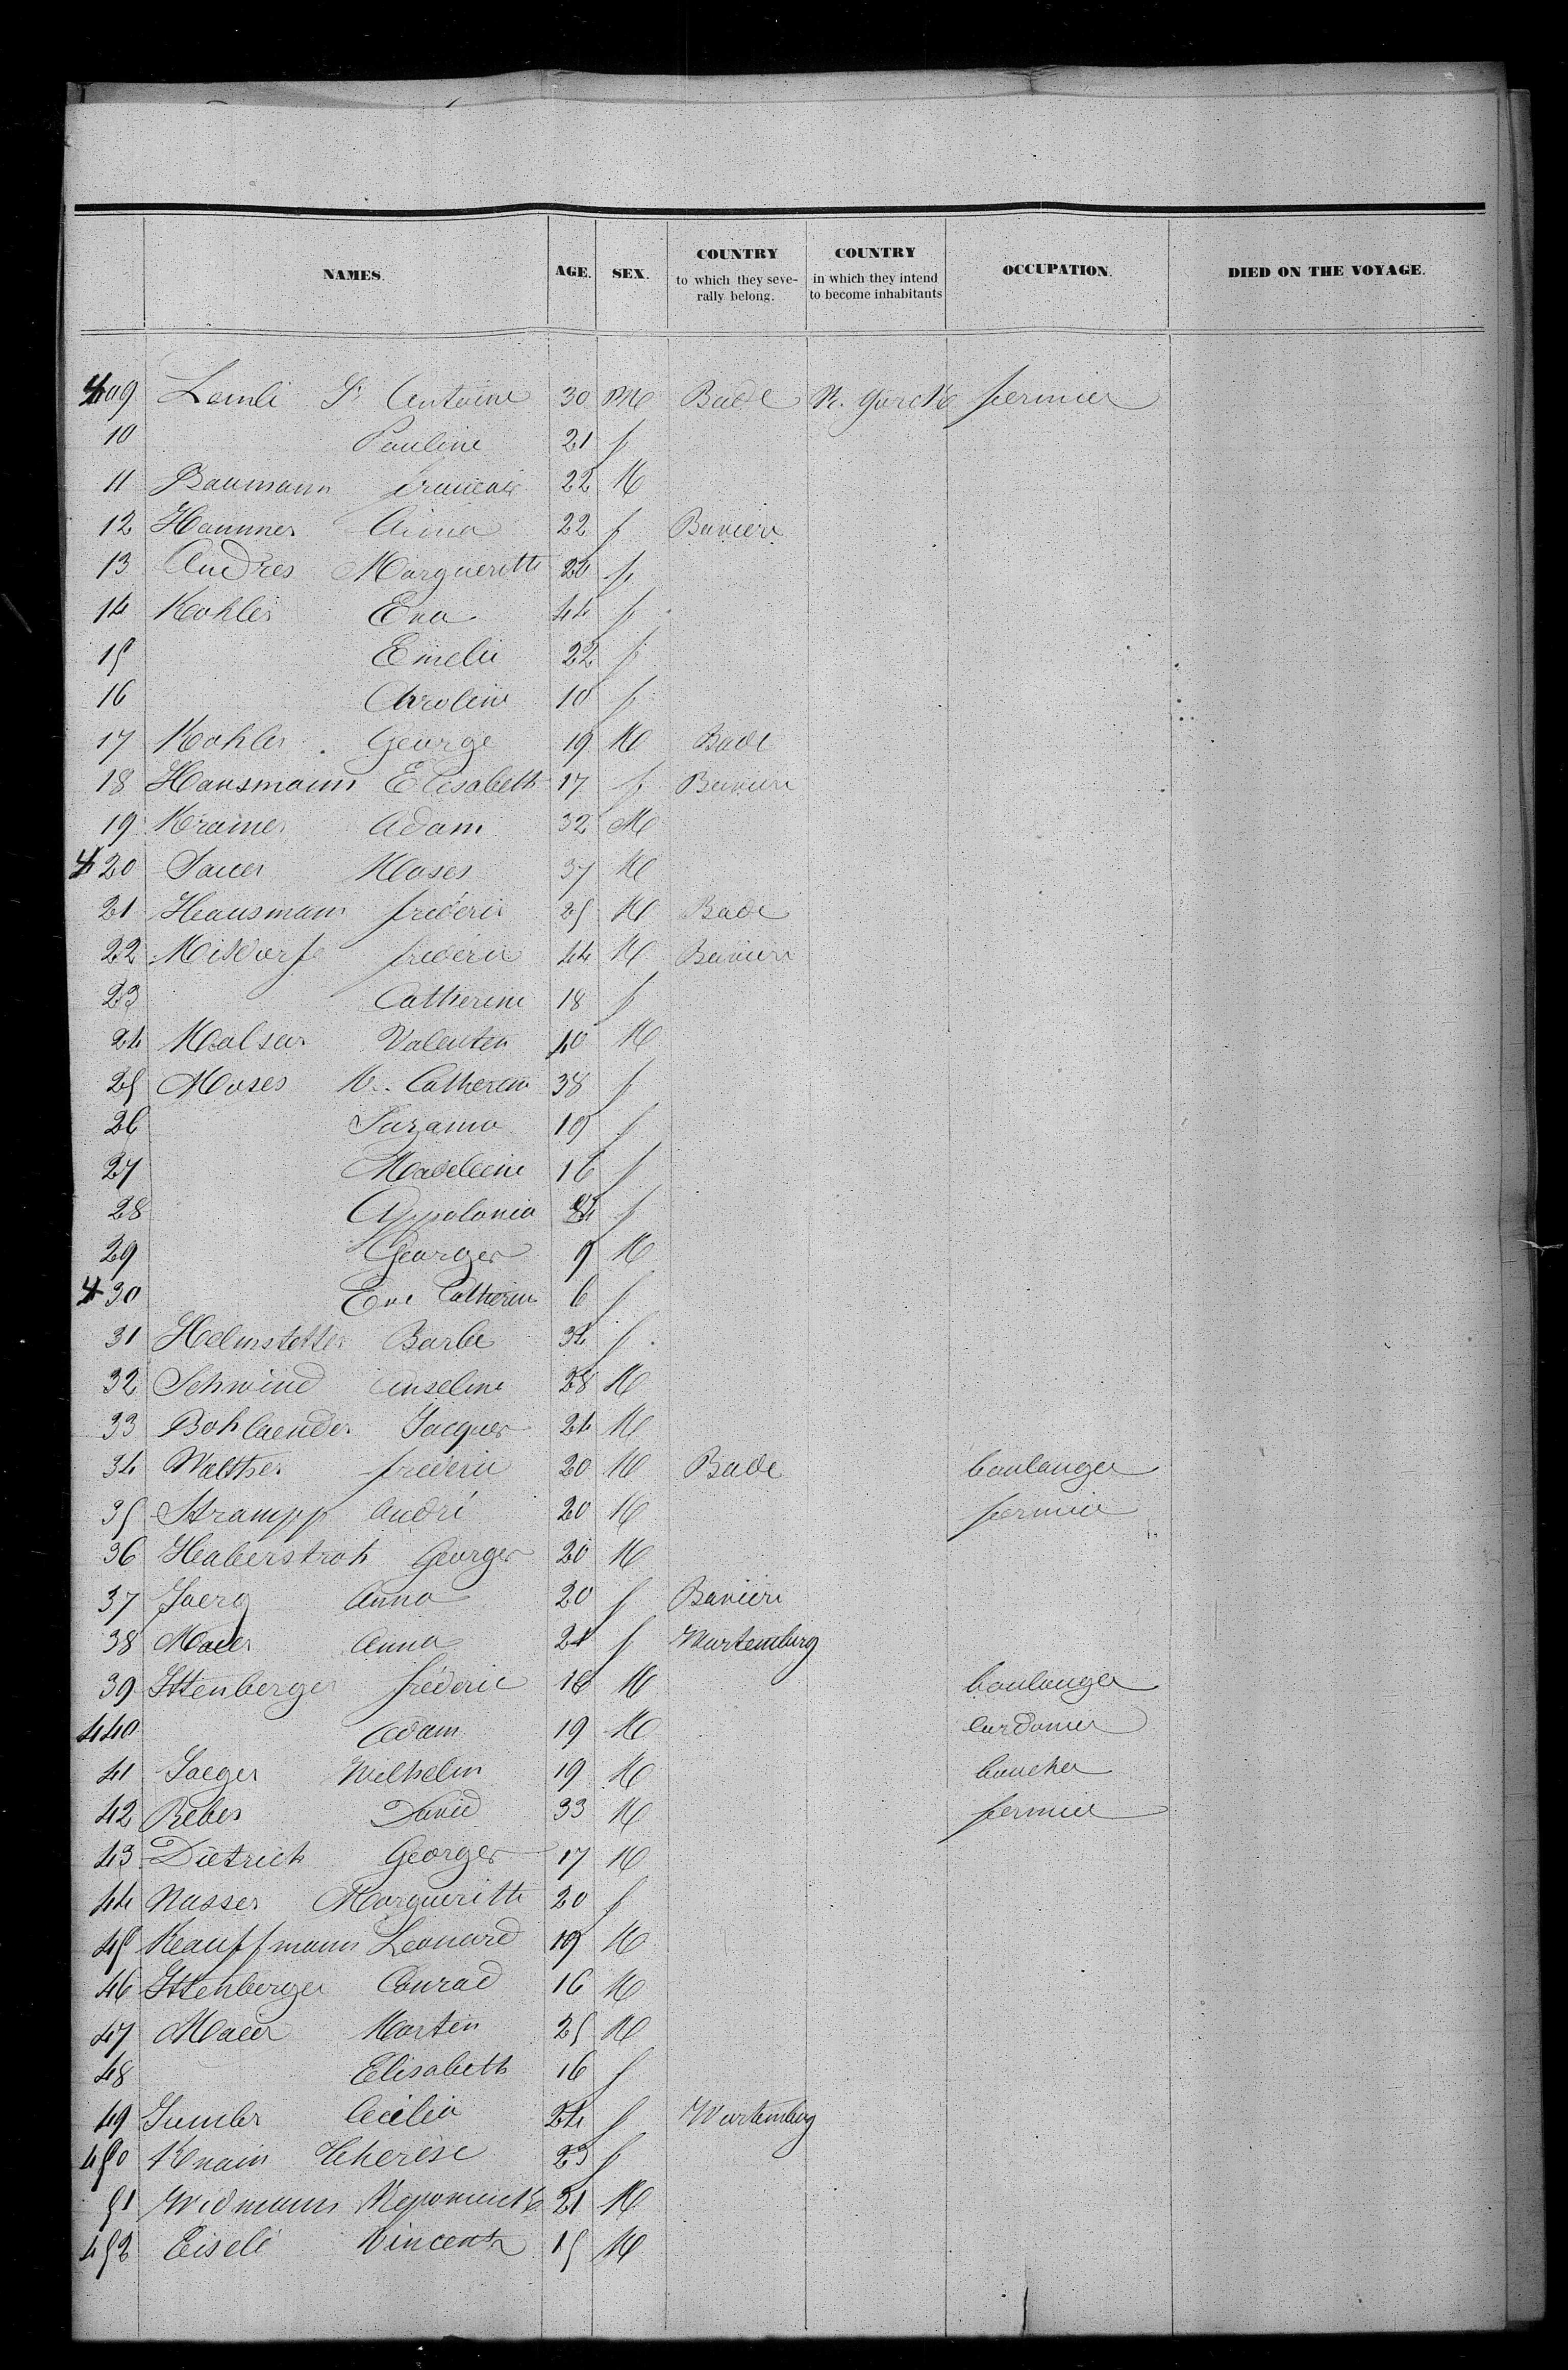 NAMES. AGE. SEX. COUNTRY to which they seve- rally belong. COUNTRY in which they intend to become inhabitants OCCUPATION. DIED ON THE VOYAGE.
409 Lemli Antoine 30 M Bade fermier
10 Pauline 21 f
11 Baumann francois 22 M
12 Hammer Anna 22 f Baviere
13 Andres Margueritte f
14 Kohler Eva 44 f
15 Emelie 22 f
16 Caroline 10 f
17 Kohler George 19 M Bade
18 Hausmann Elisabeth 17 f Baviere
19 Kramer Adam 32 M
420 Sauer Moses 37 M
21 Hausmann frederic 25 M Bade
22 frederic 44 M Baviere
23 Catherine 18 f
24 Valenten 40 M
25 Moses M. Catherine 38 f
26 Suzanna 19 f
27 Madeleine 16 f
28 Appolonia f
29 Georges 9 M
430 Eve Catherine 6 f
31 Helmstetter Barbe 34 f
32 Schwind Anselme 28 M
33 Bohlaender Jacques 24 M
34 Walther frederic 20 M Bade boulanger
35 Strampp André 20 M fermier
36 Haberstroh Georges 20 M
37 Joerg Anna 20 f Baviere
38 Maier Anna f Wurtemburg
39 Ittenberger fréderic 16 M boulanger
440 Adam 19 M cordonier
41 Jaeger Wilhelm 19 M boucher
42 Reber David 33 M fermier
43 Dietrich Georges 17 M
44 Nasser Margueritte 20 f
45 Kauffmann Leonard 19 M
46 Ittenberger Conrad 16 M
47 Maier Martin 25 M
48 Elisabeth 16 f
49 Cecilia 24 f Wurtemberg
450 Knain Therèse 23 f
51 Widmann 21 M
452 Eiselé Vincent 15 M